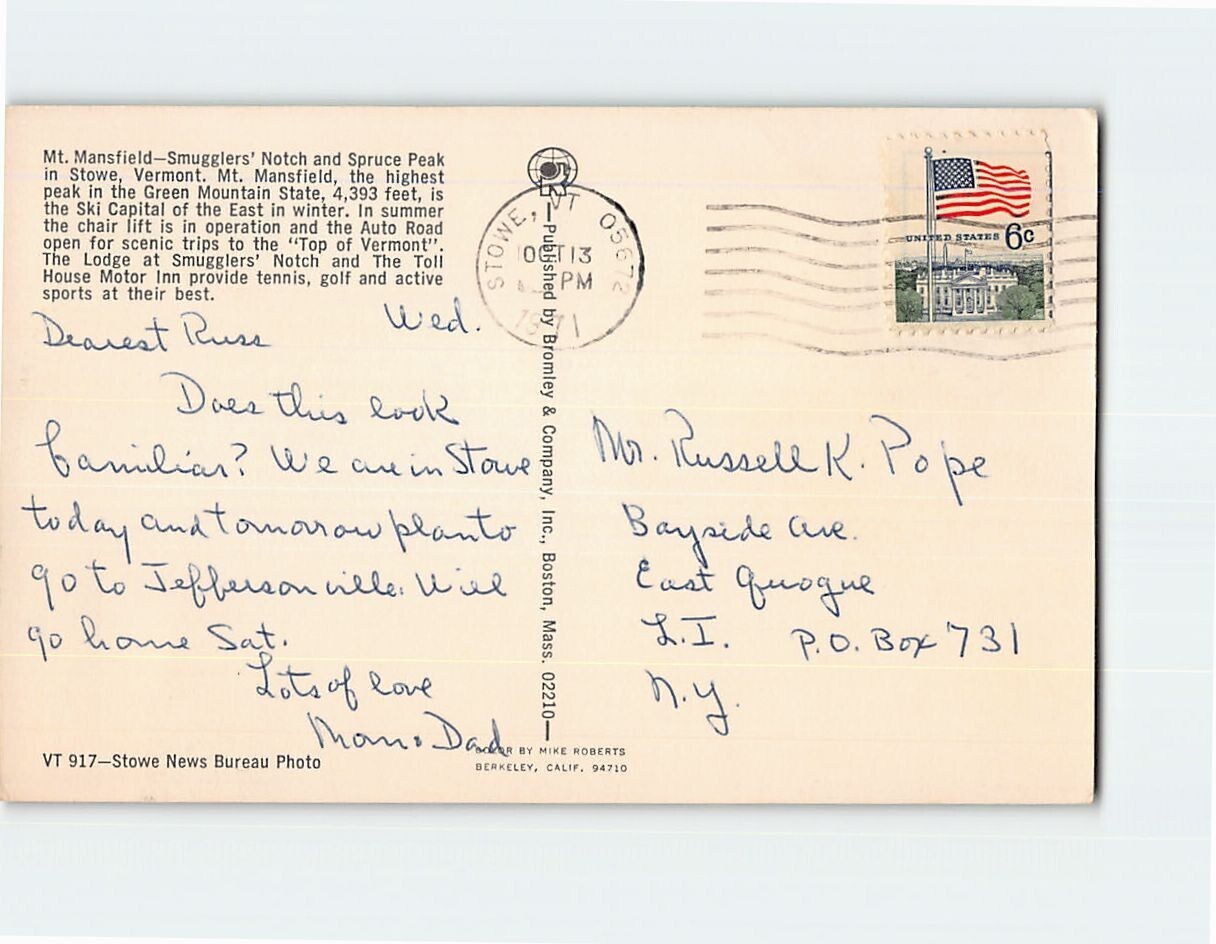 Mt. Mansfield—Smugglers' Notch and Spruce Peak
in Stowe, Vermont. Mt. Mansfield, the highest
peak in the Green Mountain State, 4,393 feet, is
the Ski Capital of the East in winter. In summer
the chair lift is in operation and the Auto Road
open for scenic trips to the "Top of Vermont".
The Lodge at Smugglers' Notch and The Toll
House Motor Inn provide tennis, golf and active
sports at their best.
Wed.
Dearest Russ
Does this look
familiar? We are in Stowe
today and tomorrow plan to
go to Jeffersonville. Will
go home Sat.
Lots of love
Mom & Dad
VT 917—Stowe News Bureau Photo
—Published by Bromley & Company, Inc., Boston, Mass. 02210—
COLOR BY MIKE ROBERTS
BERKELEY, CALIF. 94710
STOWE, VT 05672
OCT 13
PM
1971
UNITED STATES 6c
Mr. Russell K. Pope
Bayside Ave.
East Quogue
L.I. P.O. Box 731
N.Y.